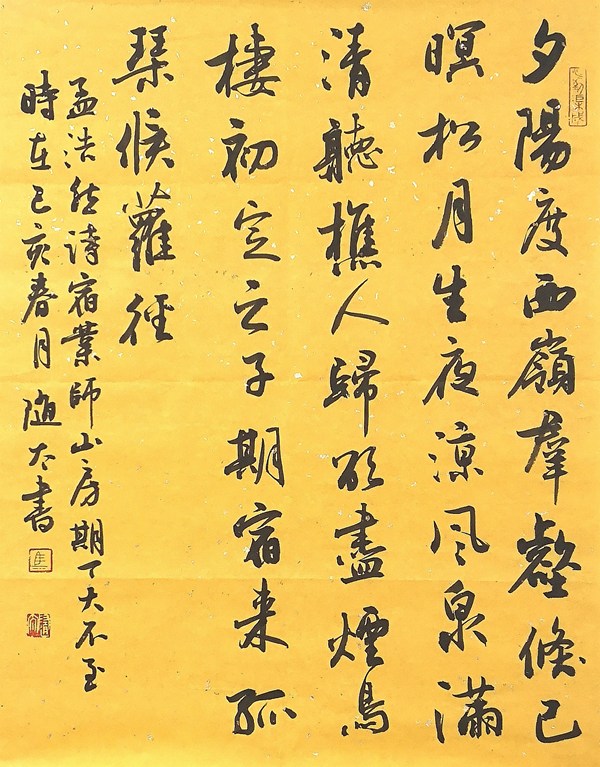 夕陽度西嶺羣壑倏已
暝松月生夜涼風泉滿
清聽樵人歸欲盡煙鳥
棲初定之子期宿来孤
琴候蘿徑
孟浩然詩宿業師山房期丁大不至
時在己亥春月隨太書